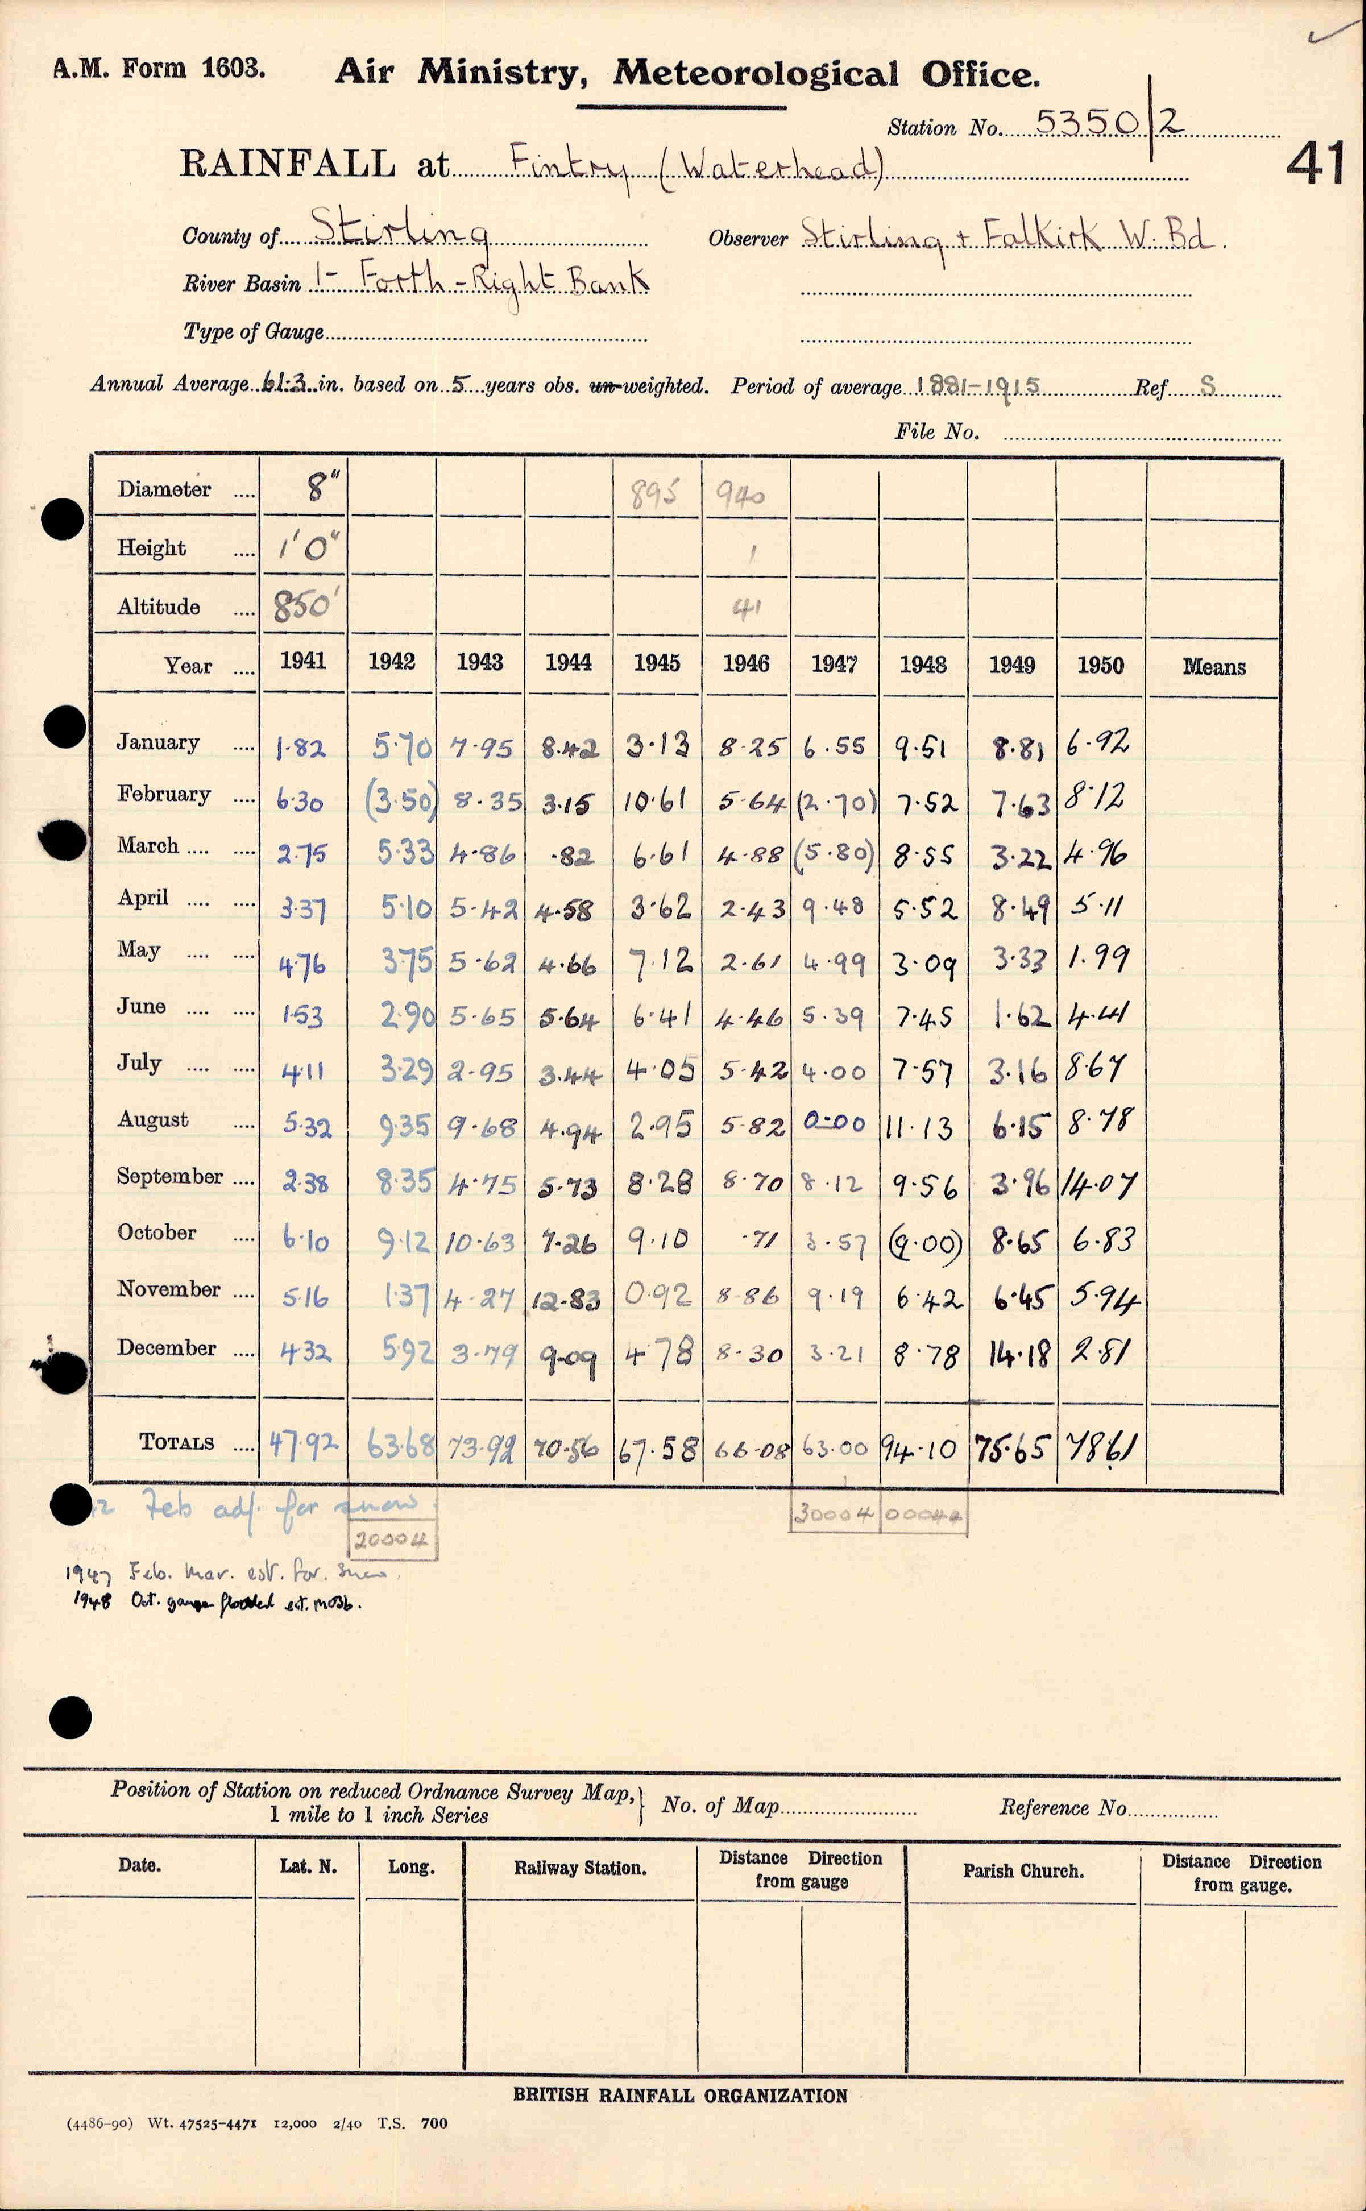 A.M. Form 1603. Air Ministry, Meteorological Office.
Station No. 5350/2
41
RAINFALL at Fintry (Waterhead)
County of Stirling Observer Stirling + Falkirk W. Bd.
River Basin 1- Forth - Right Bank
Type of Gauge
Annual Average 61.3 in. based on 5 years obs. un-weighted. Period of average 1881-1915 Ref. S
File No.
Diameter 8" 895 940
Height 1'0" 1
Altitude 850' 41
Year 1941 1942 1943 1944 1945 1946 1947 1948 1949 1950 Means
January 1.82 5.70 7.95 8.42 3.13 8.25 6.55 9.51 8.81 6.92
February 6.30 (3.50) 8.35 3.15 10.61 5.64 (2.70) 7.52 7.63 8.12
March 2.75 5.33 4.86 .82 6.61 4.88 (5.80) 8.55 3.22 4.96
April 3.37 5.10 5.42 4.58 3.62 2.43 9.48 5.52 8.49 5.11
May 4.76 3.75 5.62 4.66 7.12 2.61 4.99 3.09 3.33 1.99
June 1.53 2.90 5.65 5.64 6.41 4.46 5.39 7.45 1.62 4.41
July 4.11 3.29 2.95 3.44 4.05 5.42 4.00 7.57 3.16 8.67
August 5.32 9.35 9.68 4.94 2.95 5.82 0.00 11.13 6.15 8.78
September 2.38 8.35 4.75 5.73 8.28 8.70 8.12 9.56 3.96 14.07
October 6.10 9.12 10.63 7.26 9.10 .71 3.57 (9.00) 8.65 6.83
November 5.16 1.37 4.27 12.83 0.92 8.86 9.19 6.42 6.45 5.94
December 4.32 5.92 3.79 9.09 4.78 8.30 3.21 8.78 14.18 2.81
TOTALS 47.92 63.68 73.92 70.56 67.58 66.08 63.00 94.10 75.65 78.61
Feb adj. for snow.
20004 30004 00044
1947 Feb. Mar. est. for. snow.
1948 Oct. gauge flooded est. MO3b.
Position of Station on reduced Ordnance Survey Map, 1 mile to 1 inch Series } No. of Map Reference No.
Date. Lat. N. Long. Railway Station. Distance Direction from gauge Parish Church. Distance Direction from gauge.
BRITISH RAINFALL ORGANIZATION
(4486-90) Wt. 47525-4471 12,000 2/40 T.S. 700